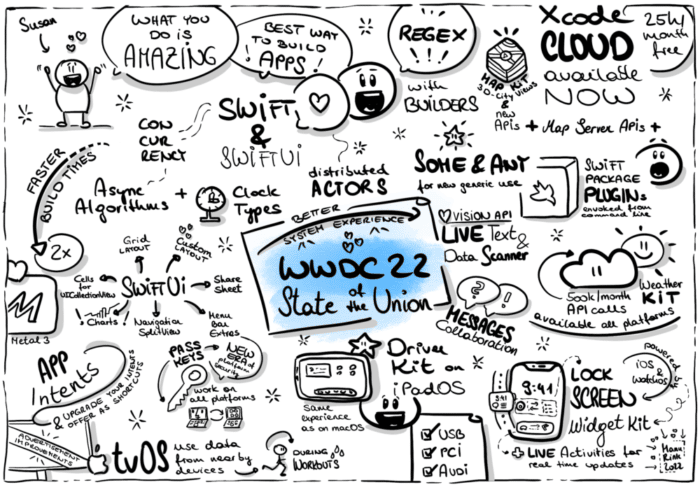 Susan
WHAT YOU
DO IS
AMAZING
BEST WAY
TO BUILD
! APPS! !
REGEX
with
BUILDERS
MAP KIT
3D-City Views
&
new
APIs + Map Server APIs +
Xcode
CLOUD
available
NOW
25h/
month
free
FASTER
BUILD TIMES
2x
CON
CUR
RENCY
SWiFT
&
SWiFTUi
Async
Algorithms
+
Clock
Types
distributed
ACTORS
SOME & ANY
for new generic use
SWiFT
PACKAGE
PLUGINs
invoked from
command line
BETTER
SYSTEM EXPERIENCE
WWDC 22
State of the Union
vision API
LIVE Text
&
Data Scanner
Grid
LAYOUT
Custom
LAYOUT
Cells
for
UICollectionView
SWiFTUi
Share
Sheet
Charts
Navigation
SplitView
Menu
Bar
Extras
M
Metal 3
MESSAGES
Collaboration
500k/month
API calls
Weather
KiT
available all platforms
APP
Intents
& UPGRADE YOUR INTENTS
OFFER AS SHORTCUTS
PASS
KEYS
NEW
ERA of
platform
security
work on
all platforms
Same
experience
as on macOS
Driver
Kit on
iPadOS
USB
PCI
AUDI
9:41
9:41
LOCK
SCREEN
Widget Kit
powered by
iOS &
WatchOS
+ LIVE Activities for
real time updates
ADVERTISEMENT
IMPROVEMENTS
tvOS
use data
from nearby
devices
DURING
WORKOUTS
Manu
Rink
2022